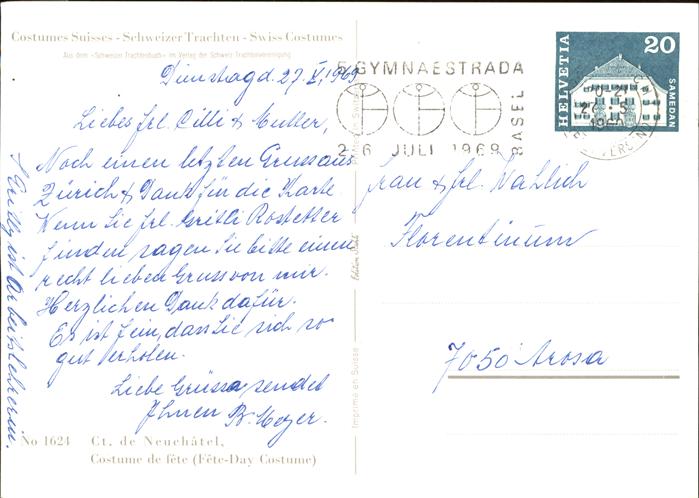 Costumes Suisses - Schweizer Trachten - Swiss Costumes
Aus dem «Schweizer Trachtenbuch» im Verlag der Schweiz. Trachtenvereinigung
Dienstag d. 27. V. 1969
Liebes Frl. Cilli & Mutter,
Noch einen letzten Gruss aus
Zürich & Dank für die Karte.
Wenn Sie Frl. Gritli Rostetter
finden sagen Sie bitte einen
recht lieben Gruss von mir.
Herzlichen Dank dafür.
Es ist fein, dass Sie sich so
gut erholen.
Liebe Grüsse sendet
Ihnen B. Meyer.
ist Arbeitslehrerin.
No 1624 Ct. de Neuchâtel,
Costume de fête (Fête-Day Costume)
Imprimé en Suisse
5. GYMNAESTRADA
BASEL
2-6 JULI 1969
HELVETIA
20
SAMEDAN
Frau & Frl. Wahlich
Florentinum
7050 Arosa